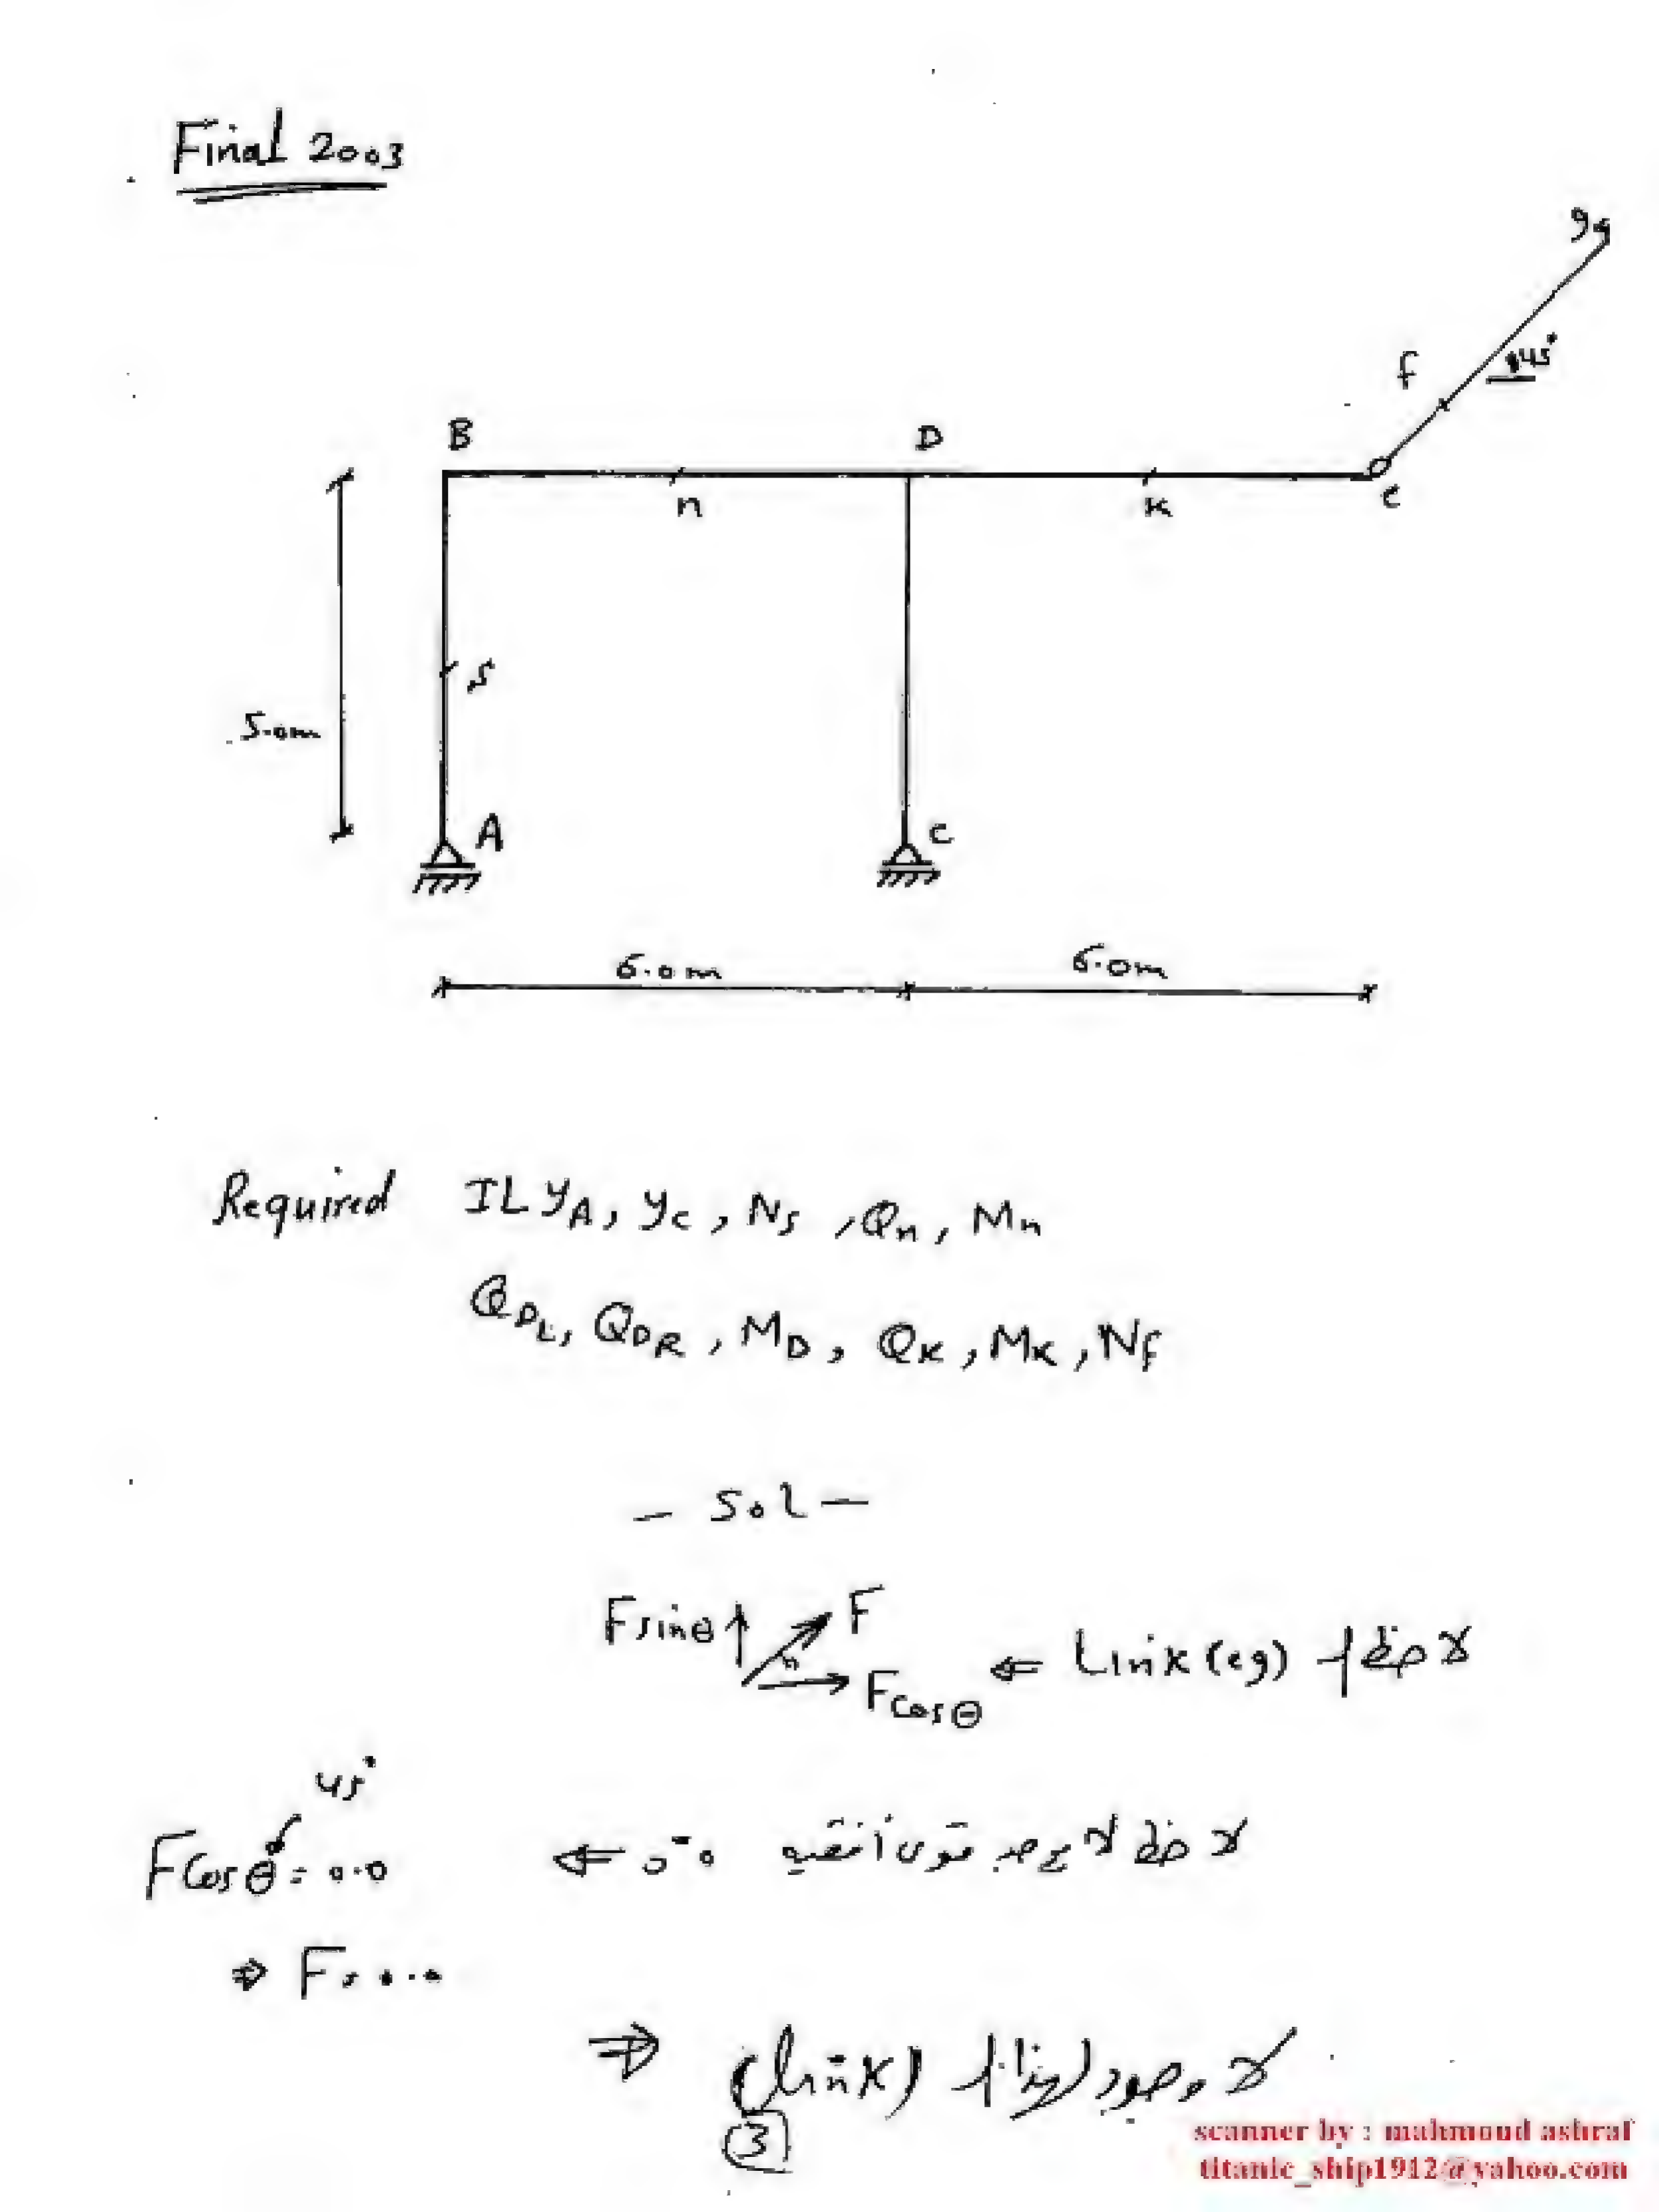 Final 2003
g
f
45°
B
D
n
k
e
s
5.0m
A
c
6.0m
6.0m
Required IL YA, Yc, Ns, Qn, Mn
QDL, QDR, MD, QK, MK, Nf
— Sol —
لاحظ أن Link (eg) ⇐ F sinθ F F cosθ
45°
لاحظ لا يوجد قوى أفقيه ⇐ F cosθ = 0.0
⇒ F = 0.0
⇒ لا وجود لهذا ال (link)
3
scanner by : mahmoud ashraf
titanic_ship1912@yahoo.com